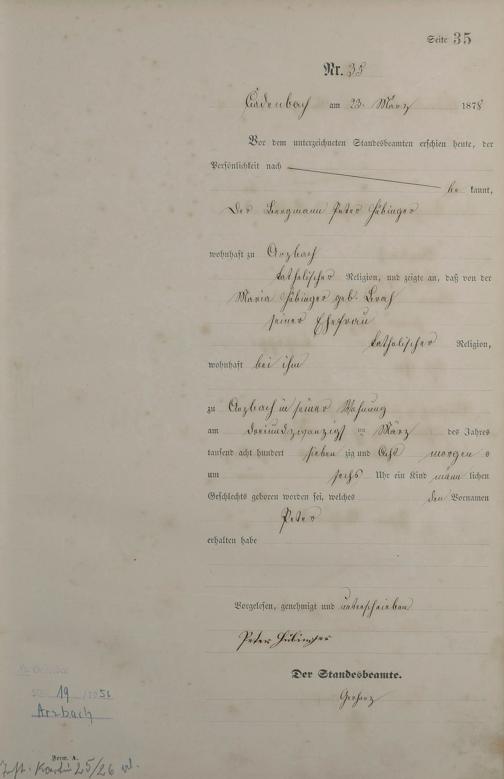 Seite 35
Nr. 35
Cadenbach am 23. März 1878
Vor dem unterzeichneten Standesbeamten erschien heute, der
Persönlichkeit nach
be kannt,
der Bergmann Peter Hübinger
wohnhaft zu Arzbach
katholischer Religion, und zeigte an, daß von der
Maria Hübinger geb.
seiner Ehefrau
katholischer Religion,
wohnhaft bei ihm
zu Arzbach in seiner Wohnung
am dreiundzwanzigst en März des Jahres
tausend acht hundert sieben zig und Acht morgen s
um sechs Uhr ein Kind männ lichen
Geschlechts geboren worden sei, welches den Vornamen
Peter
erhalten habe
Vorgelesen, genehmigt und unterschrieben
Peter Hübinger
Der Standesbeamte.
19
Arzbach
Form. A.
25/26